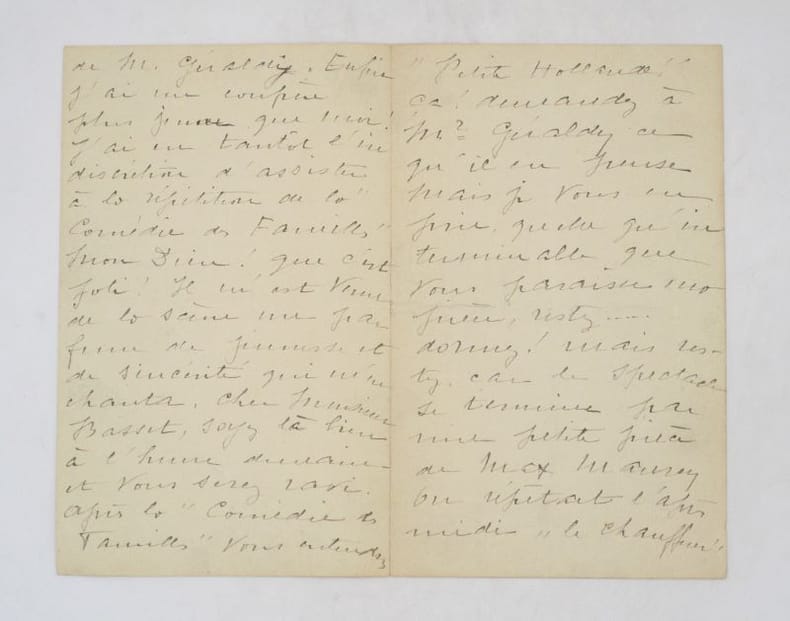 de M. Géraldy. Enfin
j'ai un confrère
plus jeune que moi!
J'ai eu tantôt l'in
discrétion d'assister
à la répétition de la "
Comédie des Familles"
Mon Dieu! que c'est
joli! Il m'est venu
de la scène un par
fum de jeunesse et
de sincérité qui m'en
chanta. Cher Monsieur
Basset, soyez là bien
à l'heure demain
et vous serez ravi.
Après la "Comédie des
Familles" vous entendrez
"Petite Hollande"!
ça! demandez à
Mr Géraldy ce
qu'il en pense
Mais je vous en
prie, quelle qu'in
terminable que
vous paraisse ma
pièce, restez.....
dormez! mais res-
tez, car le spectacle
se termine par
une petite pièce
de Max Maurey
On répétait l'après
midi "le chauffeur"